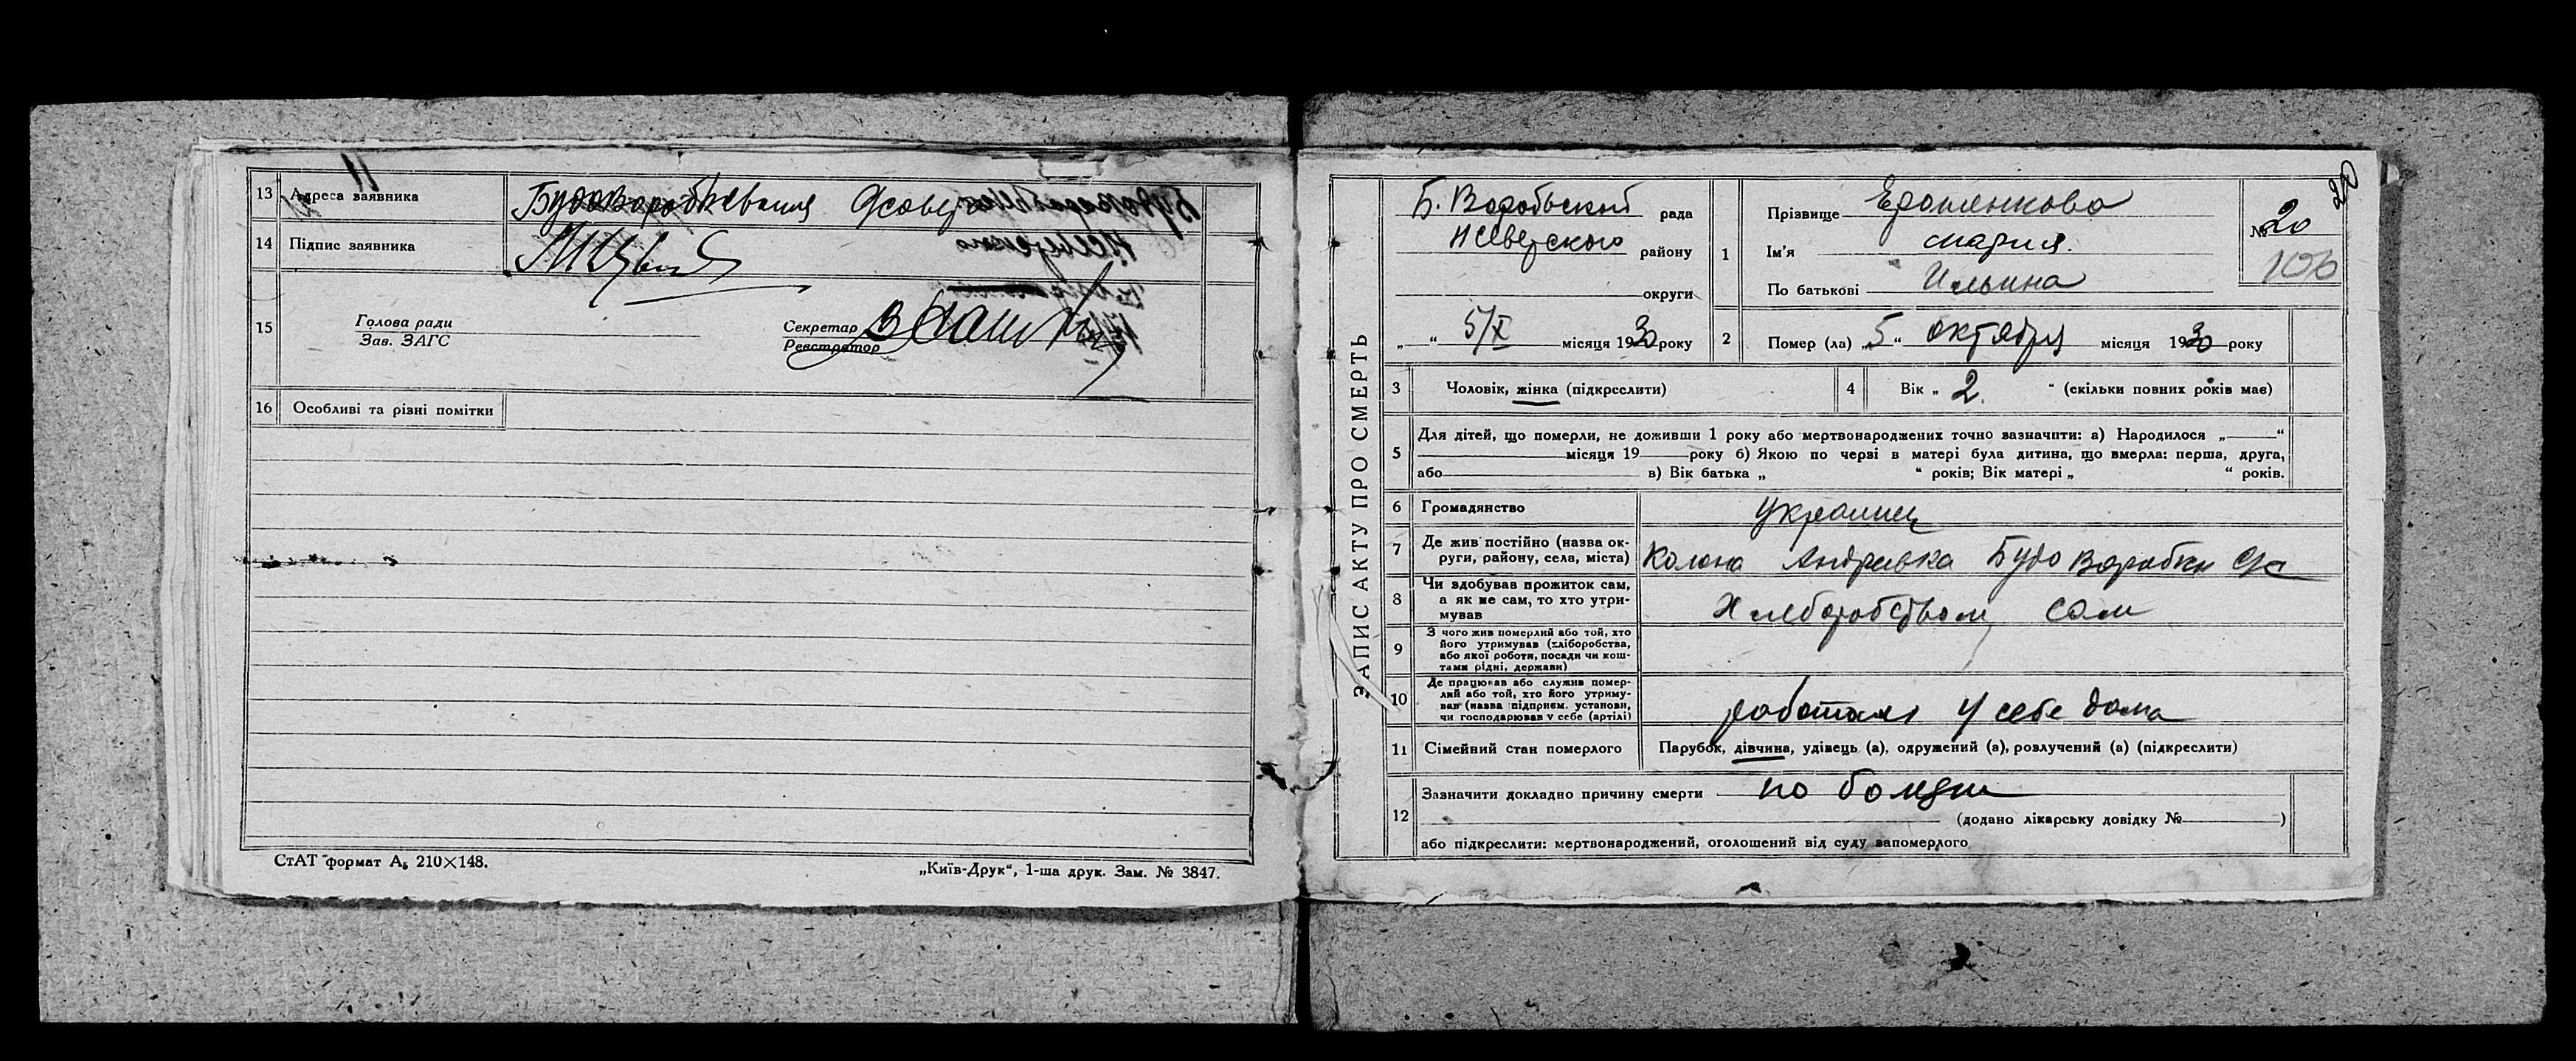 13 Адреса заявника
14 Підпис заявника
15 Голова ради
Зав. ЗАГС
Секретар
Реєстратор
16 Особливі та різні помітки
СтАТ формат А5 210×148.
„Київ-Друк“, 1-ша друк. Зам. № 3847.
ЗАПИС АКТУ ПРО СМЕРТЬ
Б. Воробьевский рада
Н Северского району
округи
„ “ 5/X місяця 1930 року
1 Прізвище Ерошенкова
Ім'я Мария.
По батькові Ильина
№ 20
20
106
2 Помер (ла) „5“ октября місяця 1930 року
3 Чоловік, жінка (підкреслити)
4 Вік „ 2. “ (скільки повних років має)
5 Для дітей, що померли, не доживши 1 року або мертвонароджених точно зазначити: а) Народилося „ “
місяця 19 року б) Якою по черзі в матері була дитина, що вмерла: перша, друга,
або в) Вік батька „ “ років; Вік матері „ “ років.
6 Громадянство Украинец
7 Де жив постійно (назва округи, району, села, міста) Андревка Будо Воробки С/С
8 Чи здобував прожиток сам,
а як не сам, то хто утримував
Хлеборобством, сам
9 З чого жив померлий або той, хто
його утримував (хліборобства,
або якої роботи, посади чи коштами рідні, держави)
10 Де працював або служив померлий або той, хто його утримував (назва підприєм. установи,
чи господарював у себе (артілі)
работал у себе дома
11 Сімейний стан померлого Парубок, дівчина, удівець (а), одружений (а), розлучений (а) (підкреслити)
12 Зазначити докладно причину смерти по
(додано лікарську довідку № )
або підкреслити: мертвонароджений, оголошений від суду запомерлого